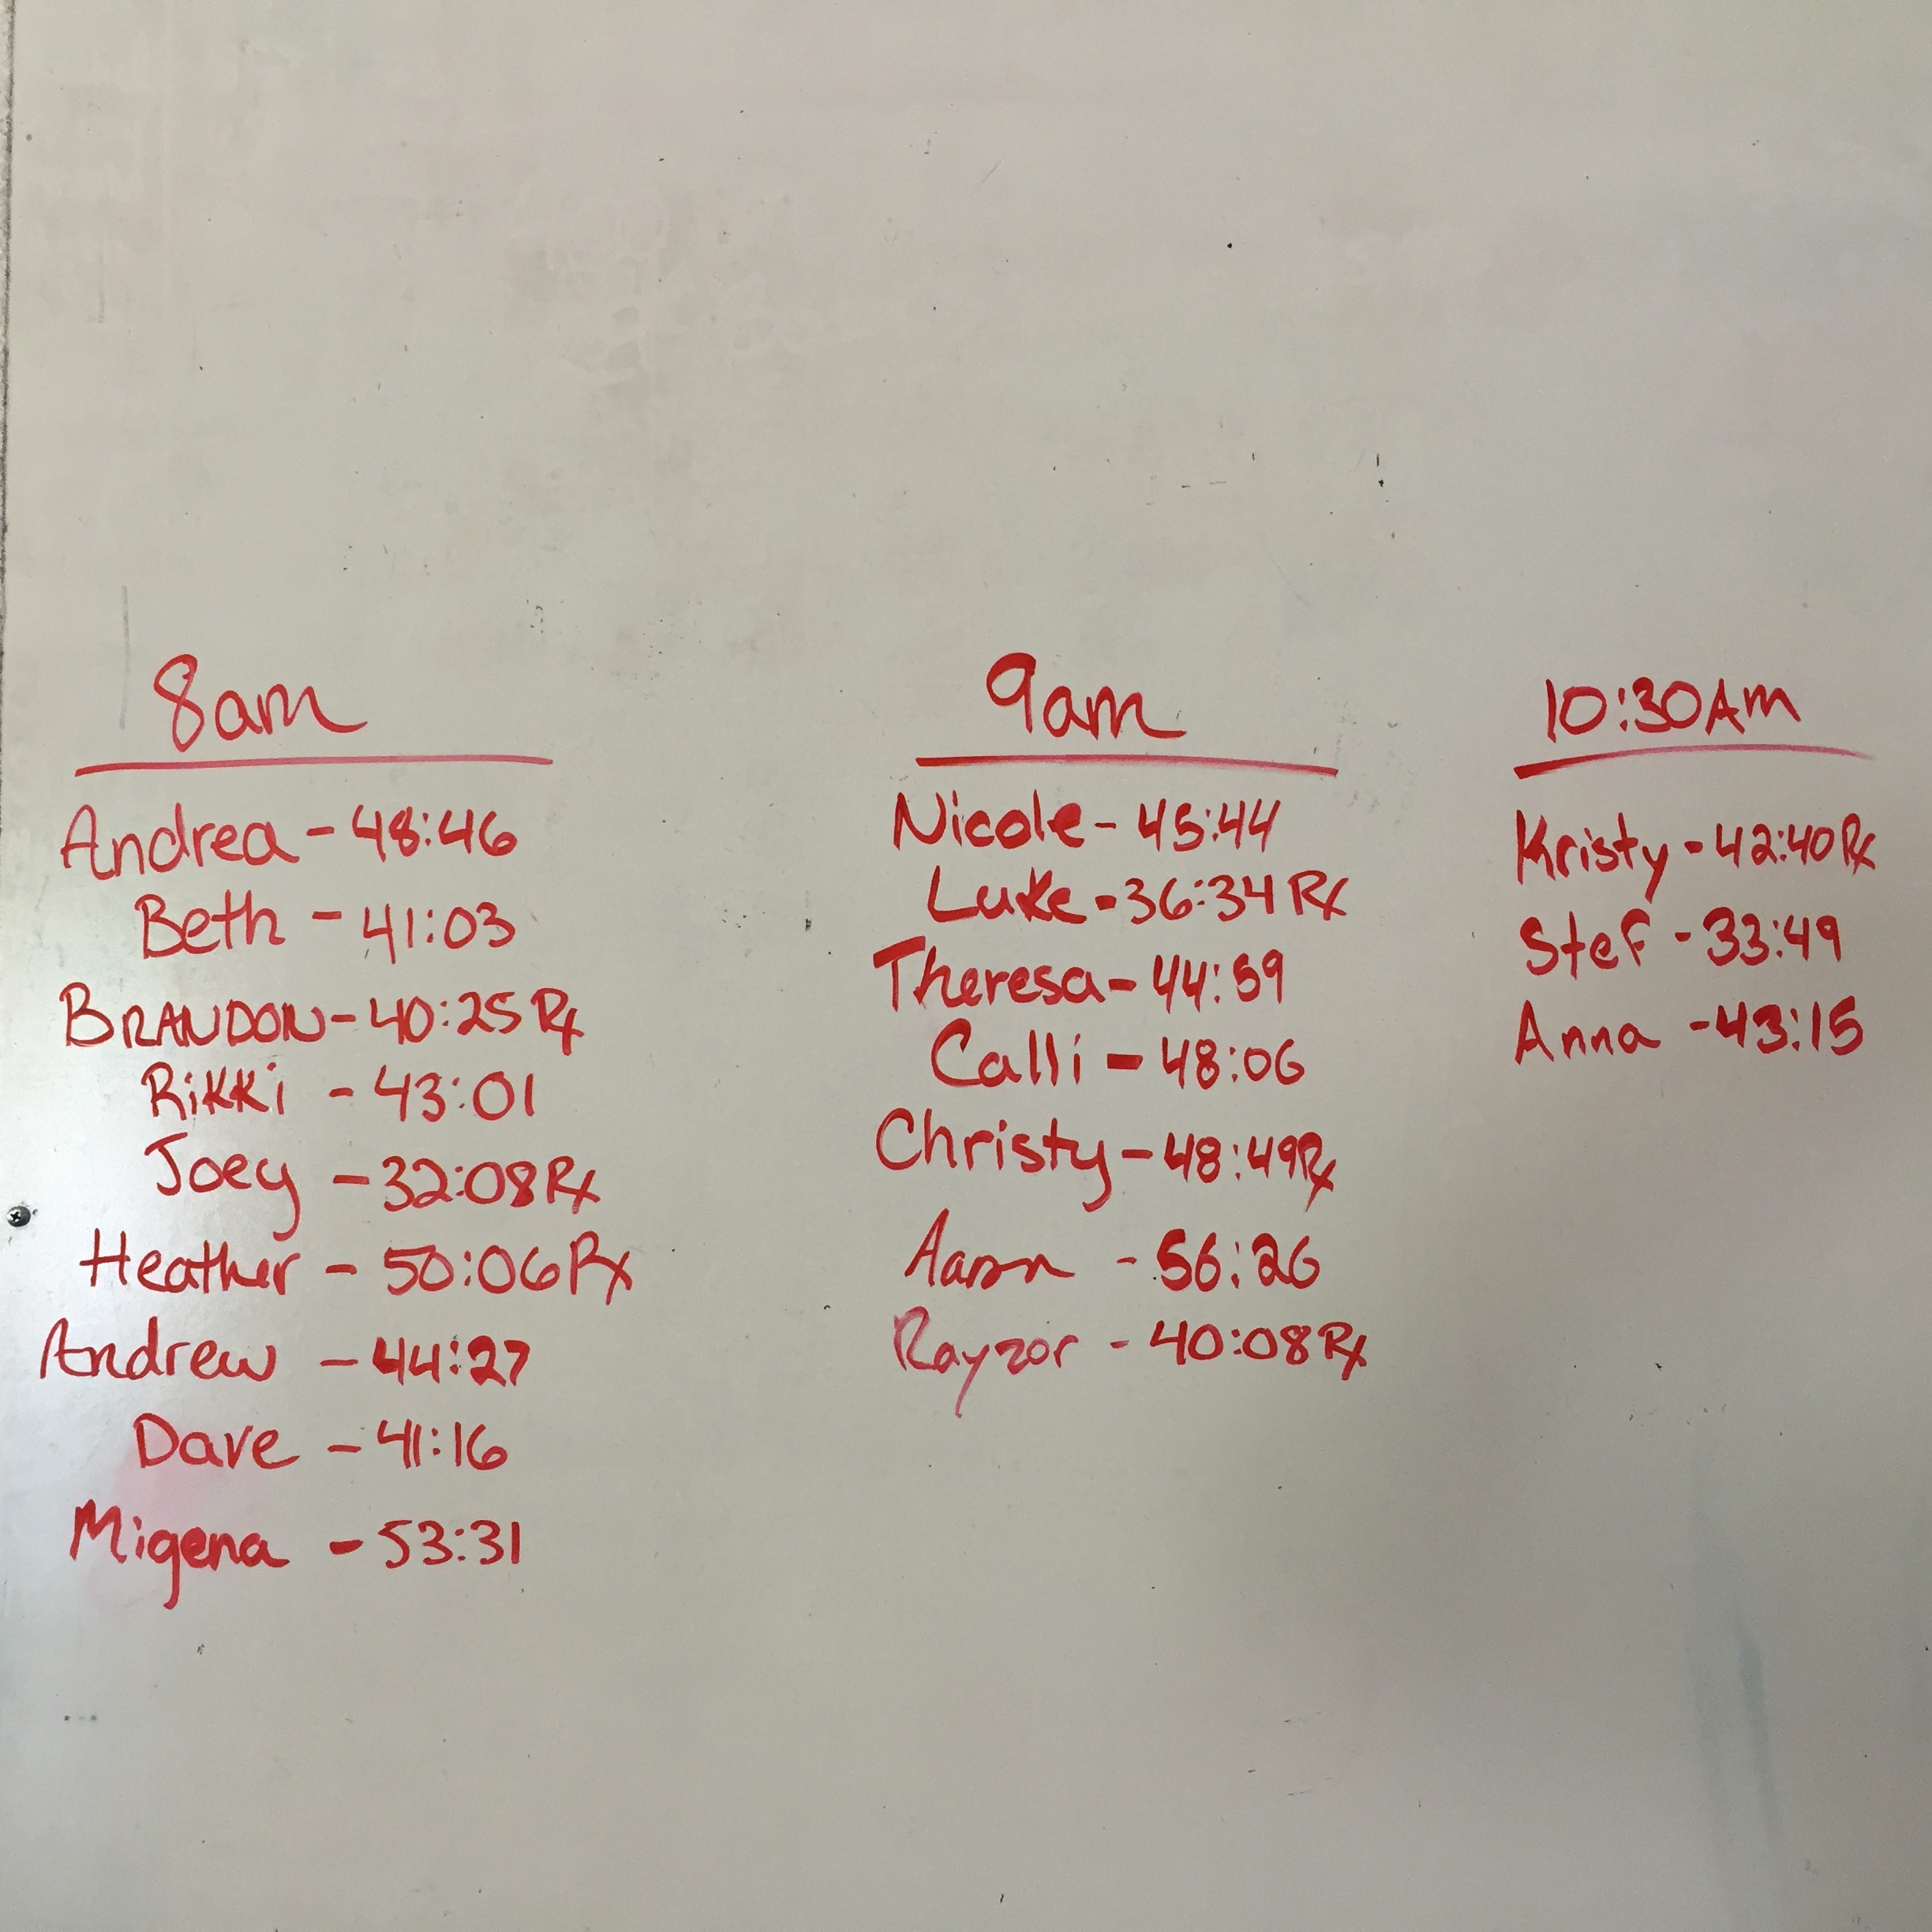 8am
Andrea - 48:46
Beth - 41:03
BRANDON - 40:25 Rx
Rikki - 43:01
Joey - 32:08 Rx
Heather - 50:06 Rx
Andrew - 44:27
Dave - 41:16
Migena - 53:31
9am
Nicole - 45:44
Luke - 36:34 Rx
Theresa - 44:59
Calli - 48:06
Christy - 48:49 Rx
Aaron - 56:26
Rayzor - 40:08 Rx
10:30AM
Kristy - 42:40 Rx
Stef - 33:49
Anna - 43:15